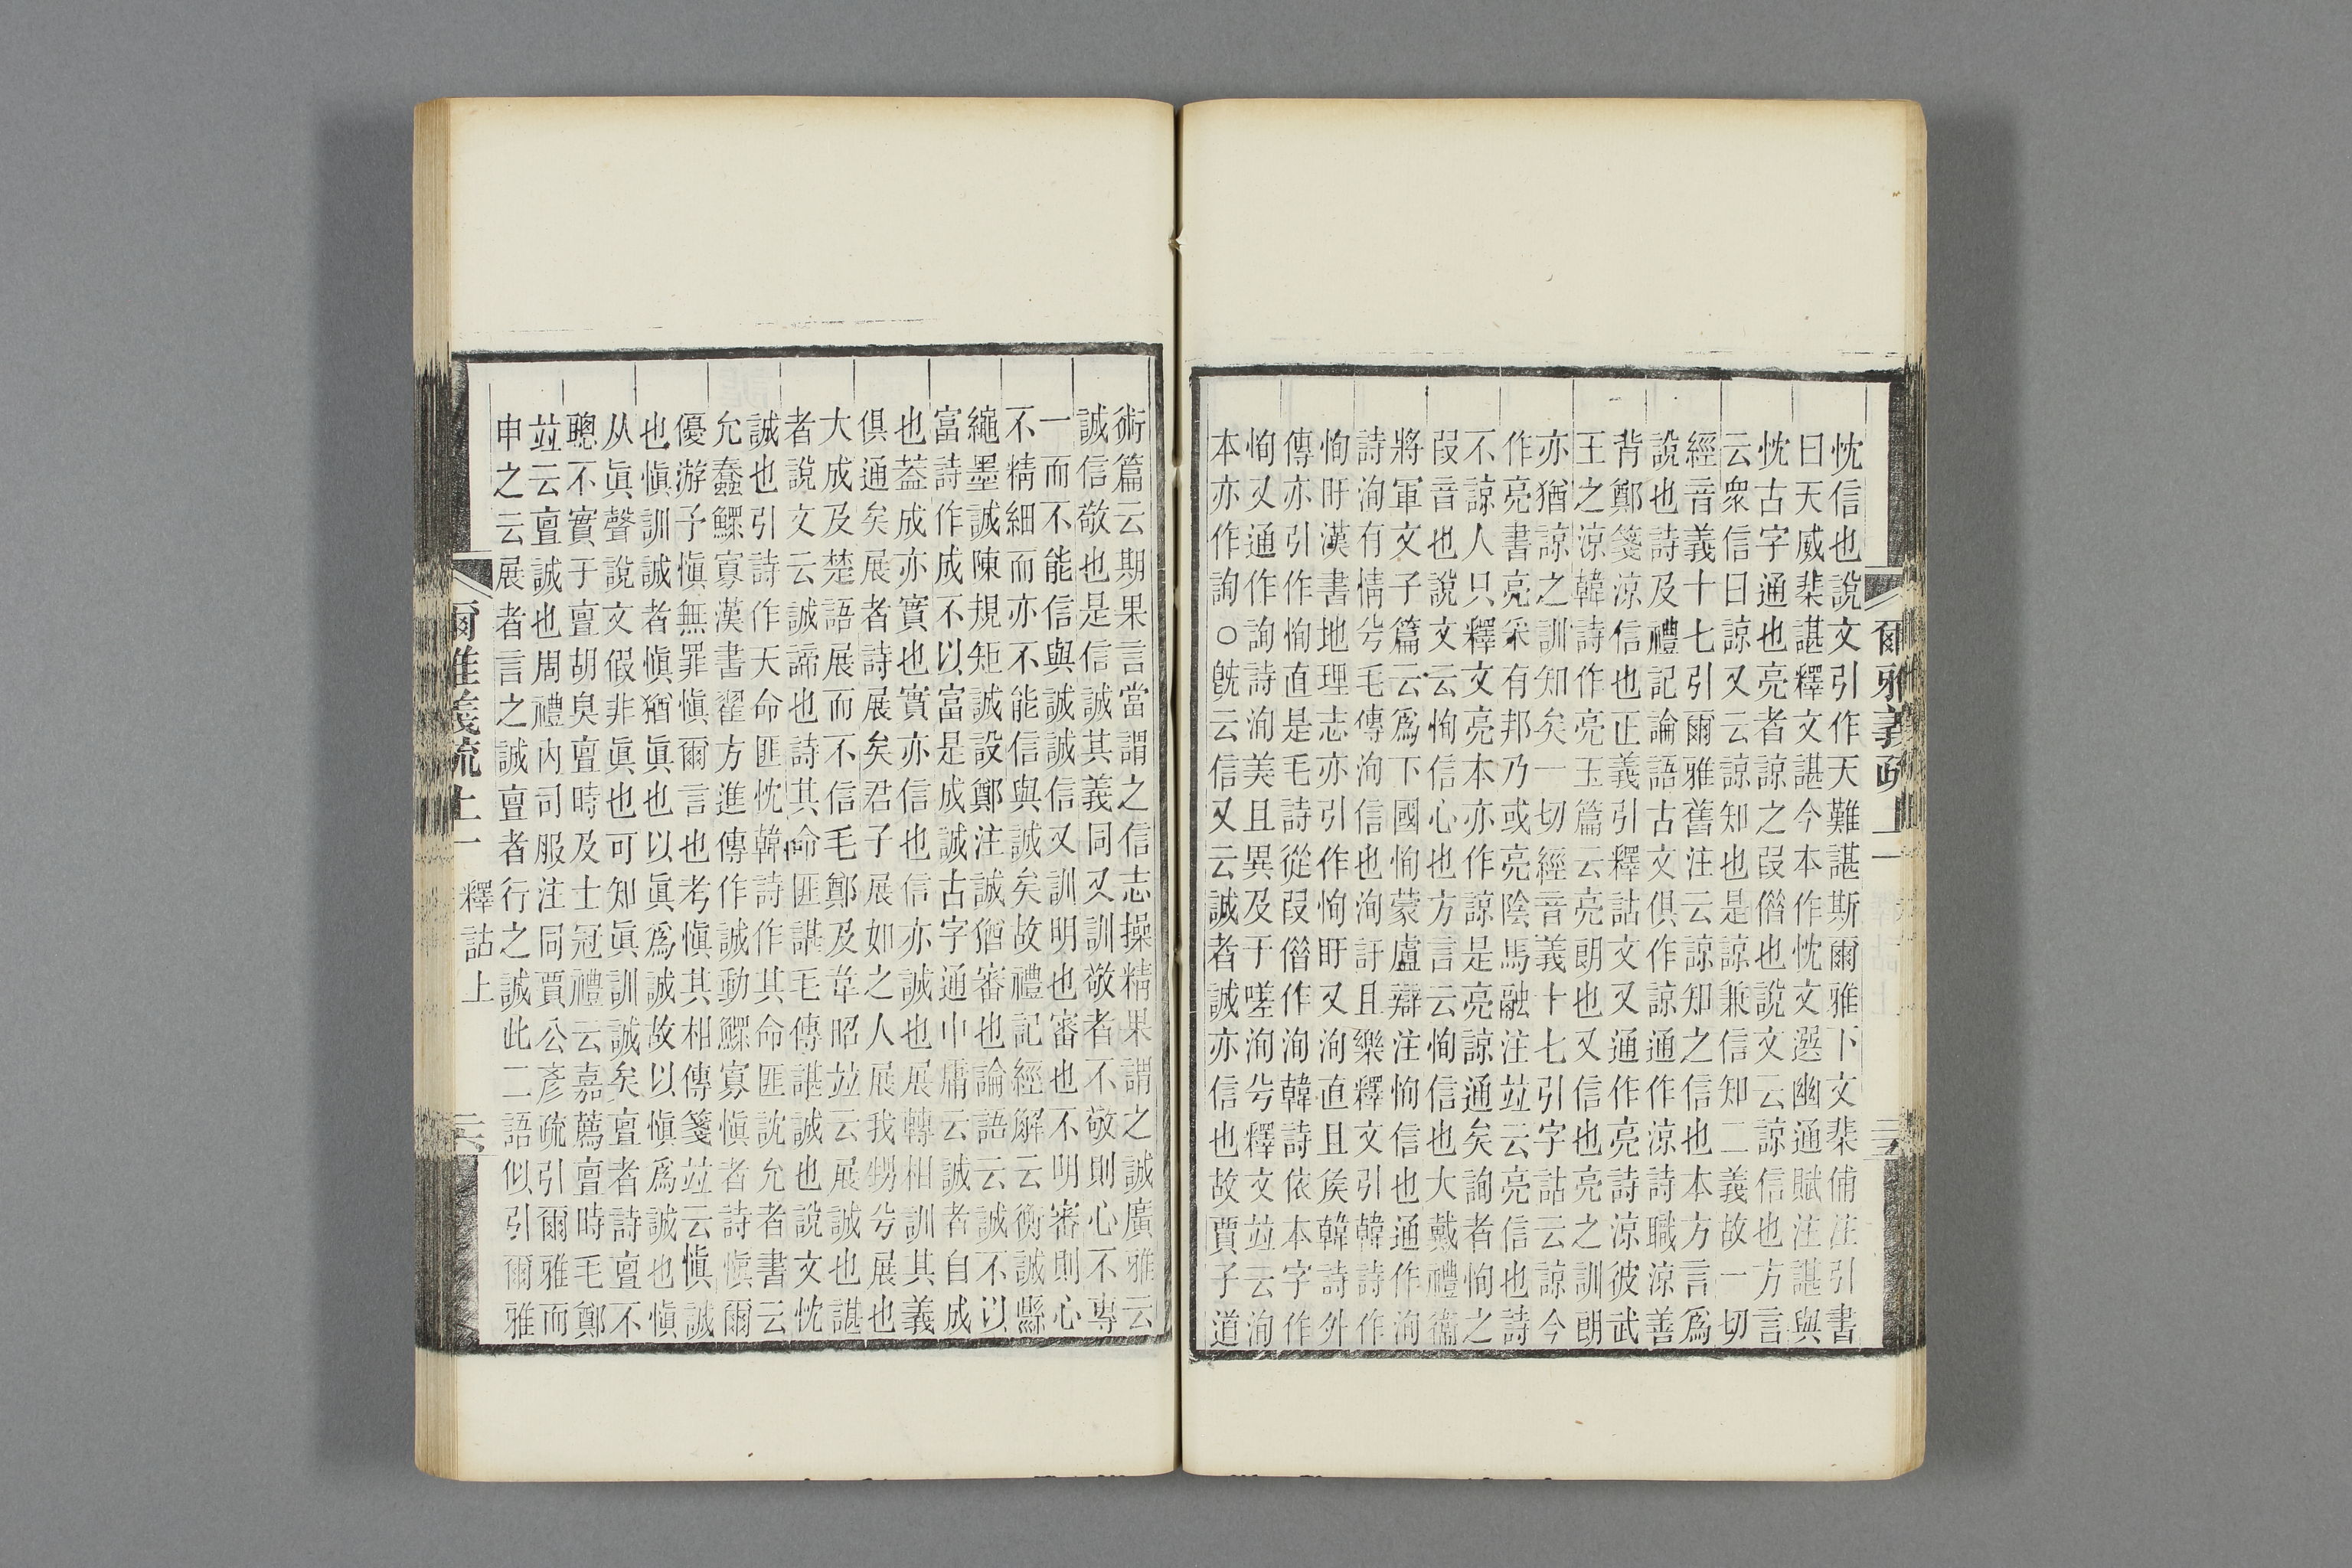 爾雅義疏 上一
忱信也說文引作天難諶斯爾雅下文棐俌注引書
曰天威棐諶釋文諶今本作忱文選幽通賦注諶與
忱古字通也亮者諒之叚借也說文云諒信也方言
云衆信曰諒又云諒知也是諒兼信知二義故一切
經音義十七引爾雅舊注云諒知之信也本方言爲
說也詩及禮記論語古文俱作諒通作涼詩職涼善
背鄭箋涼信也正義引釋詁文又通作亮詩涼彼武
王之涼韓詩作亮玉篇云亮朗也又信也亮之訓朗
亦猶諒之訓知矣一切經音義十七引字詁云諒今
作亮書亮采有邦乃或亮陰馬融注竝云亮信也詩
不諒人只釋文亮本亦作諒是亮諒通矣詢者恂之
叚音也說文云恂信心也方言云恂信也大戴禮衞
將軍文子篇云爲下國恂蒙盧辯注恂信也通作洵
詩洵有情兮毛傳洵信也洵訏且樂釋文引韓詩作
恂盱漢書地理志亦引作恂盱又洵直且矦韓詩外
傳亦引作恂直是毛詩從叚借作洵韓詩依本字作
恂又通作詢詩洵美且異及于嗟洵兮釋文竝云洵
本亦作詢○旣云信又云誠者誠亦信也故賈子道
術篇云期果言當謂之信志操精果謂之誠廣雅云
誠信敬也是信誠其義同又訓敬者不敬則心不專
一而不能信與誠誠信又訓明也審也不明審則心
不精細而亦不能信與誠矣故禮記經解云衡誠縣
繩墨誠陳規矩誠設鄭注誠猶審也論語云誠不以
富詩作成不以富是成誠古字通中庸云誠者自成
也葢成亦實也實亦信也信亦誠也展轉相訓其義
俱通矣展者詩展矣君子展如之人展我甥兮展也
大成及楚語展而不信毛鄭及韋昭竝云展誠也諶
者說文云誠諦也詩其命匪諶毛傳諶誠也說文忱
誠也引詩作天命匪忱韓詩作其命匪訦允者書云
允蠢鰥寡漢書翟方進傳作誠動鰥寡愼者詩愼爾
優游予愼無罪愼爾言也考愼其相傳箋竝云愼誠
也愼訓誠者愼猶眞也以眞爲誠故以愼爲誠也愼
从眞聲說文假非眞也可知眞訓誠矣亶者詩亶不
聰不實于亶胡臭亶時及士冠禮云嘉薦亶時毛鄭
竝云亶誠也周禮内司服注同賈公彥疏引爾雅而
申之云展者言之誠亶者行之誠此二語似引爾雅
爾雅義疏 上一 釋詁上